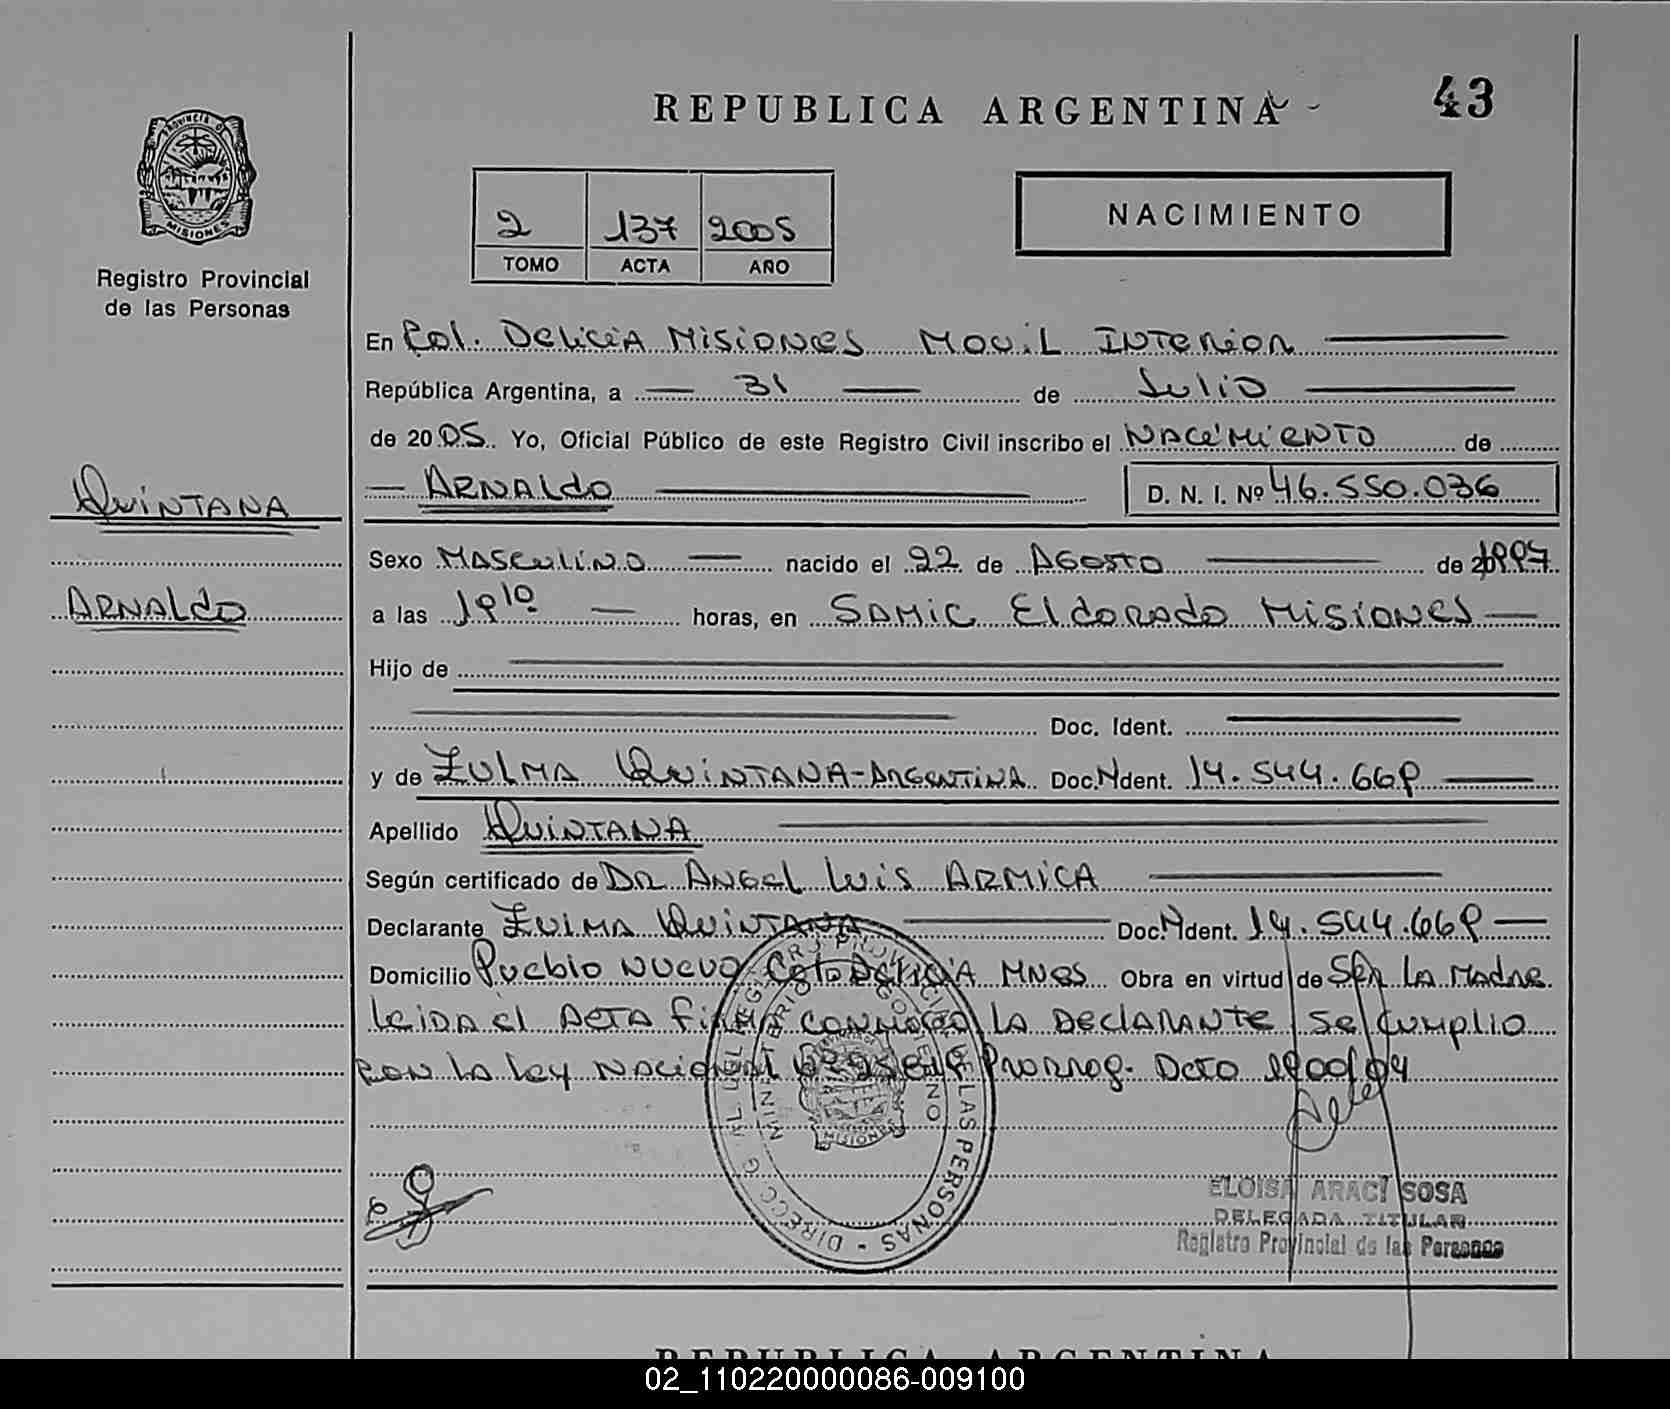 REPUBLICA ARGENTINA
43
PROVINCIA DE
MISIONES
Registro Provincial
de las Personas
2 137 2005
TOMO ACTA AÑO
NACIMIENTO
En Col. Delicia Misiones Movil Interior
República Argentina, a 31 de Julio
de 2005. Yo, Oficial Público de este Registro Civil inscribo el Nacimiento de
Quintana
Arnaldo
D. N. I. Nº 46.550.036
Sexo Masculino nacido el 22 de Agosto de 1997
Arnaldo
a las 19 10 horas, en SAMIC Eldorado Misiones
Hijo de
Doc. Ident.
y de Zulma Quintana - Argentina Doc. Ident. 14.544.669
Apellido Quintana
Según certificado de Dr. Angel Luis Armica
Declarante Zulma Quintana Doc. Ident. 14.544.669
Domicilio Pueblo Nuevo Col. Delicia Mnes Obra en virtud de Ser La Madre
Leida el Acta Firma conmigo La Declarante Se Cumplio
con la Ley Nacional Prorrog. Dcto 1900/04
DIRECC. GRAL DEL REGISTRO PROVINCIAL DE LAS PERSONAS
MINISTERIO DE GOBIERNO
MISIONES
ELOISA ARACI SOSA
DELEGADA TITULAR
Registro Provincial de las Personas
REPUBLICA ARGENTINA
02_110220000086-009100